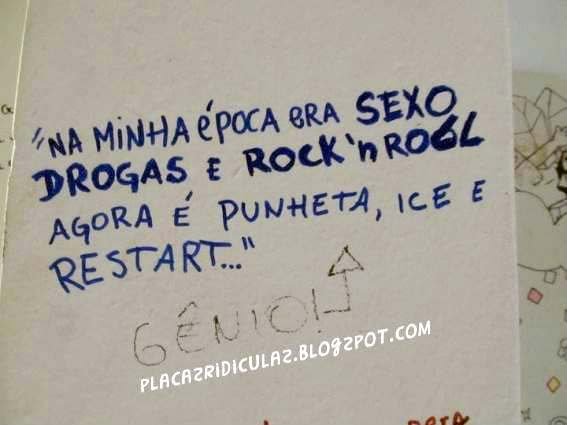 "NA MINHA ÉPOCA ERA SEXO
DROGAS E ROCK'n ROLL
AGORA É PUNHETA, ICE E
RESTART..."
GÊNIO!
PLACAZRIDICULAZ.BLOGZPOT.COM